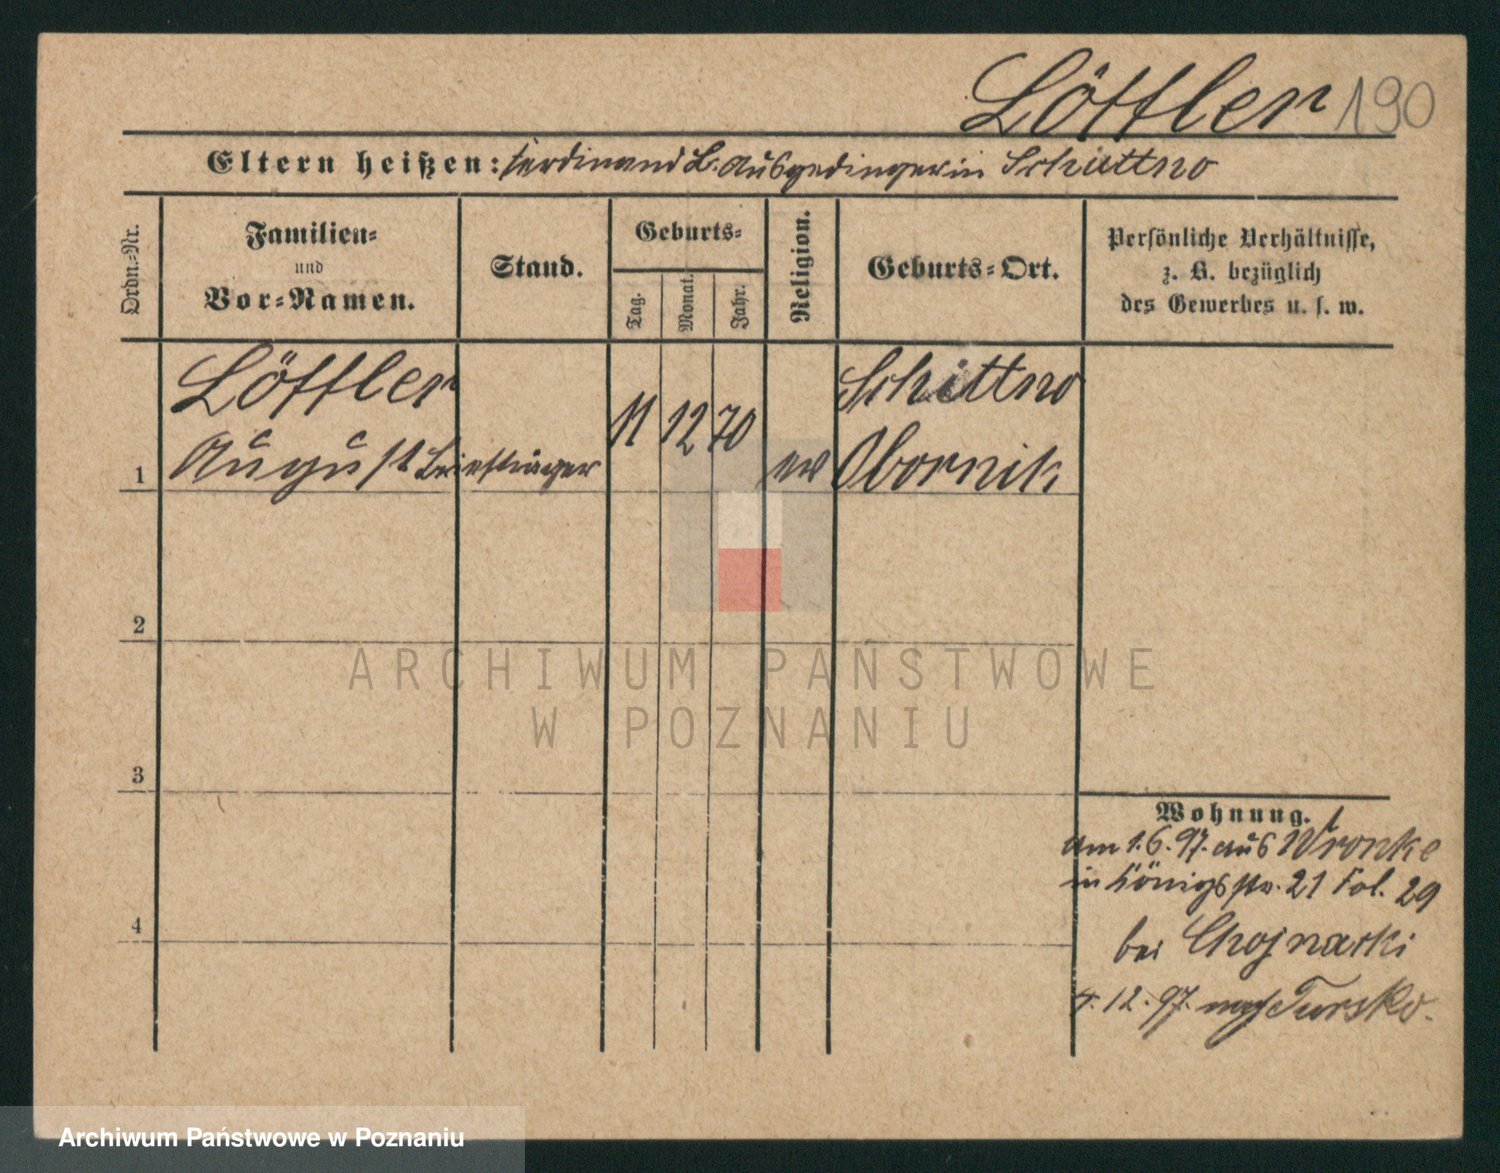 Löffler 190
Eltern heißen: Ferdinand L. Ausgedinger in Schittno
Ordn.-Nr.
Familien-
und
Vor-Namen.
Stand.
Geburts-
Tag.
Monat.
Jahr.
Religion.
Geburts-Ort.
Persönliche Verhältnisse,
z. B. bezüglich
des Gewerbes u. s. w.
Löffler
August Briefträger
11 12 70
ev
Schittno
Obornik
1
2
3
4
Wohnung.
am 1.6.97. aus Wronke
in Königsstr. 21 Fol. 29
bei Chojnacki
4.12.97. nach Tursko.
ARCHIWUM PAŃSTWOWE
W POZNANIU
Archiwum Państwowe w Poznaniu